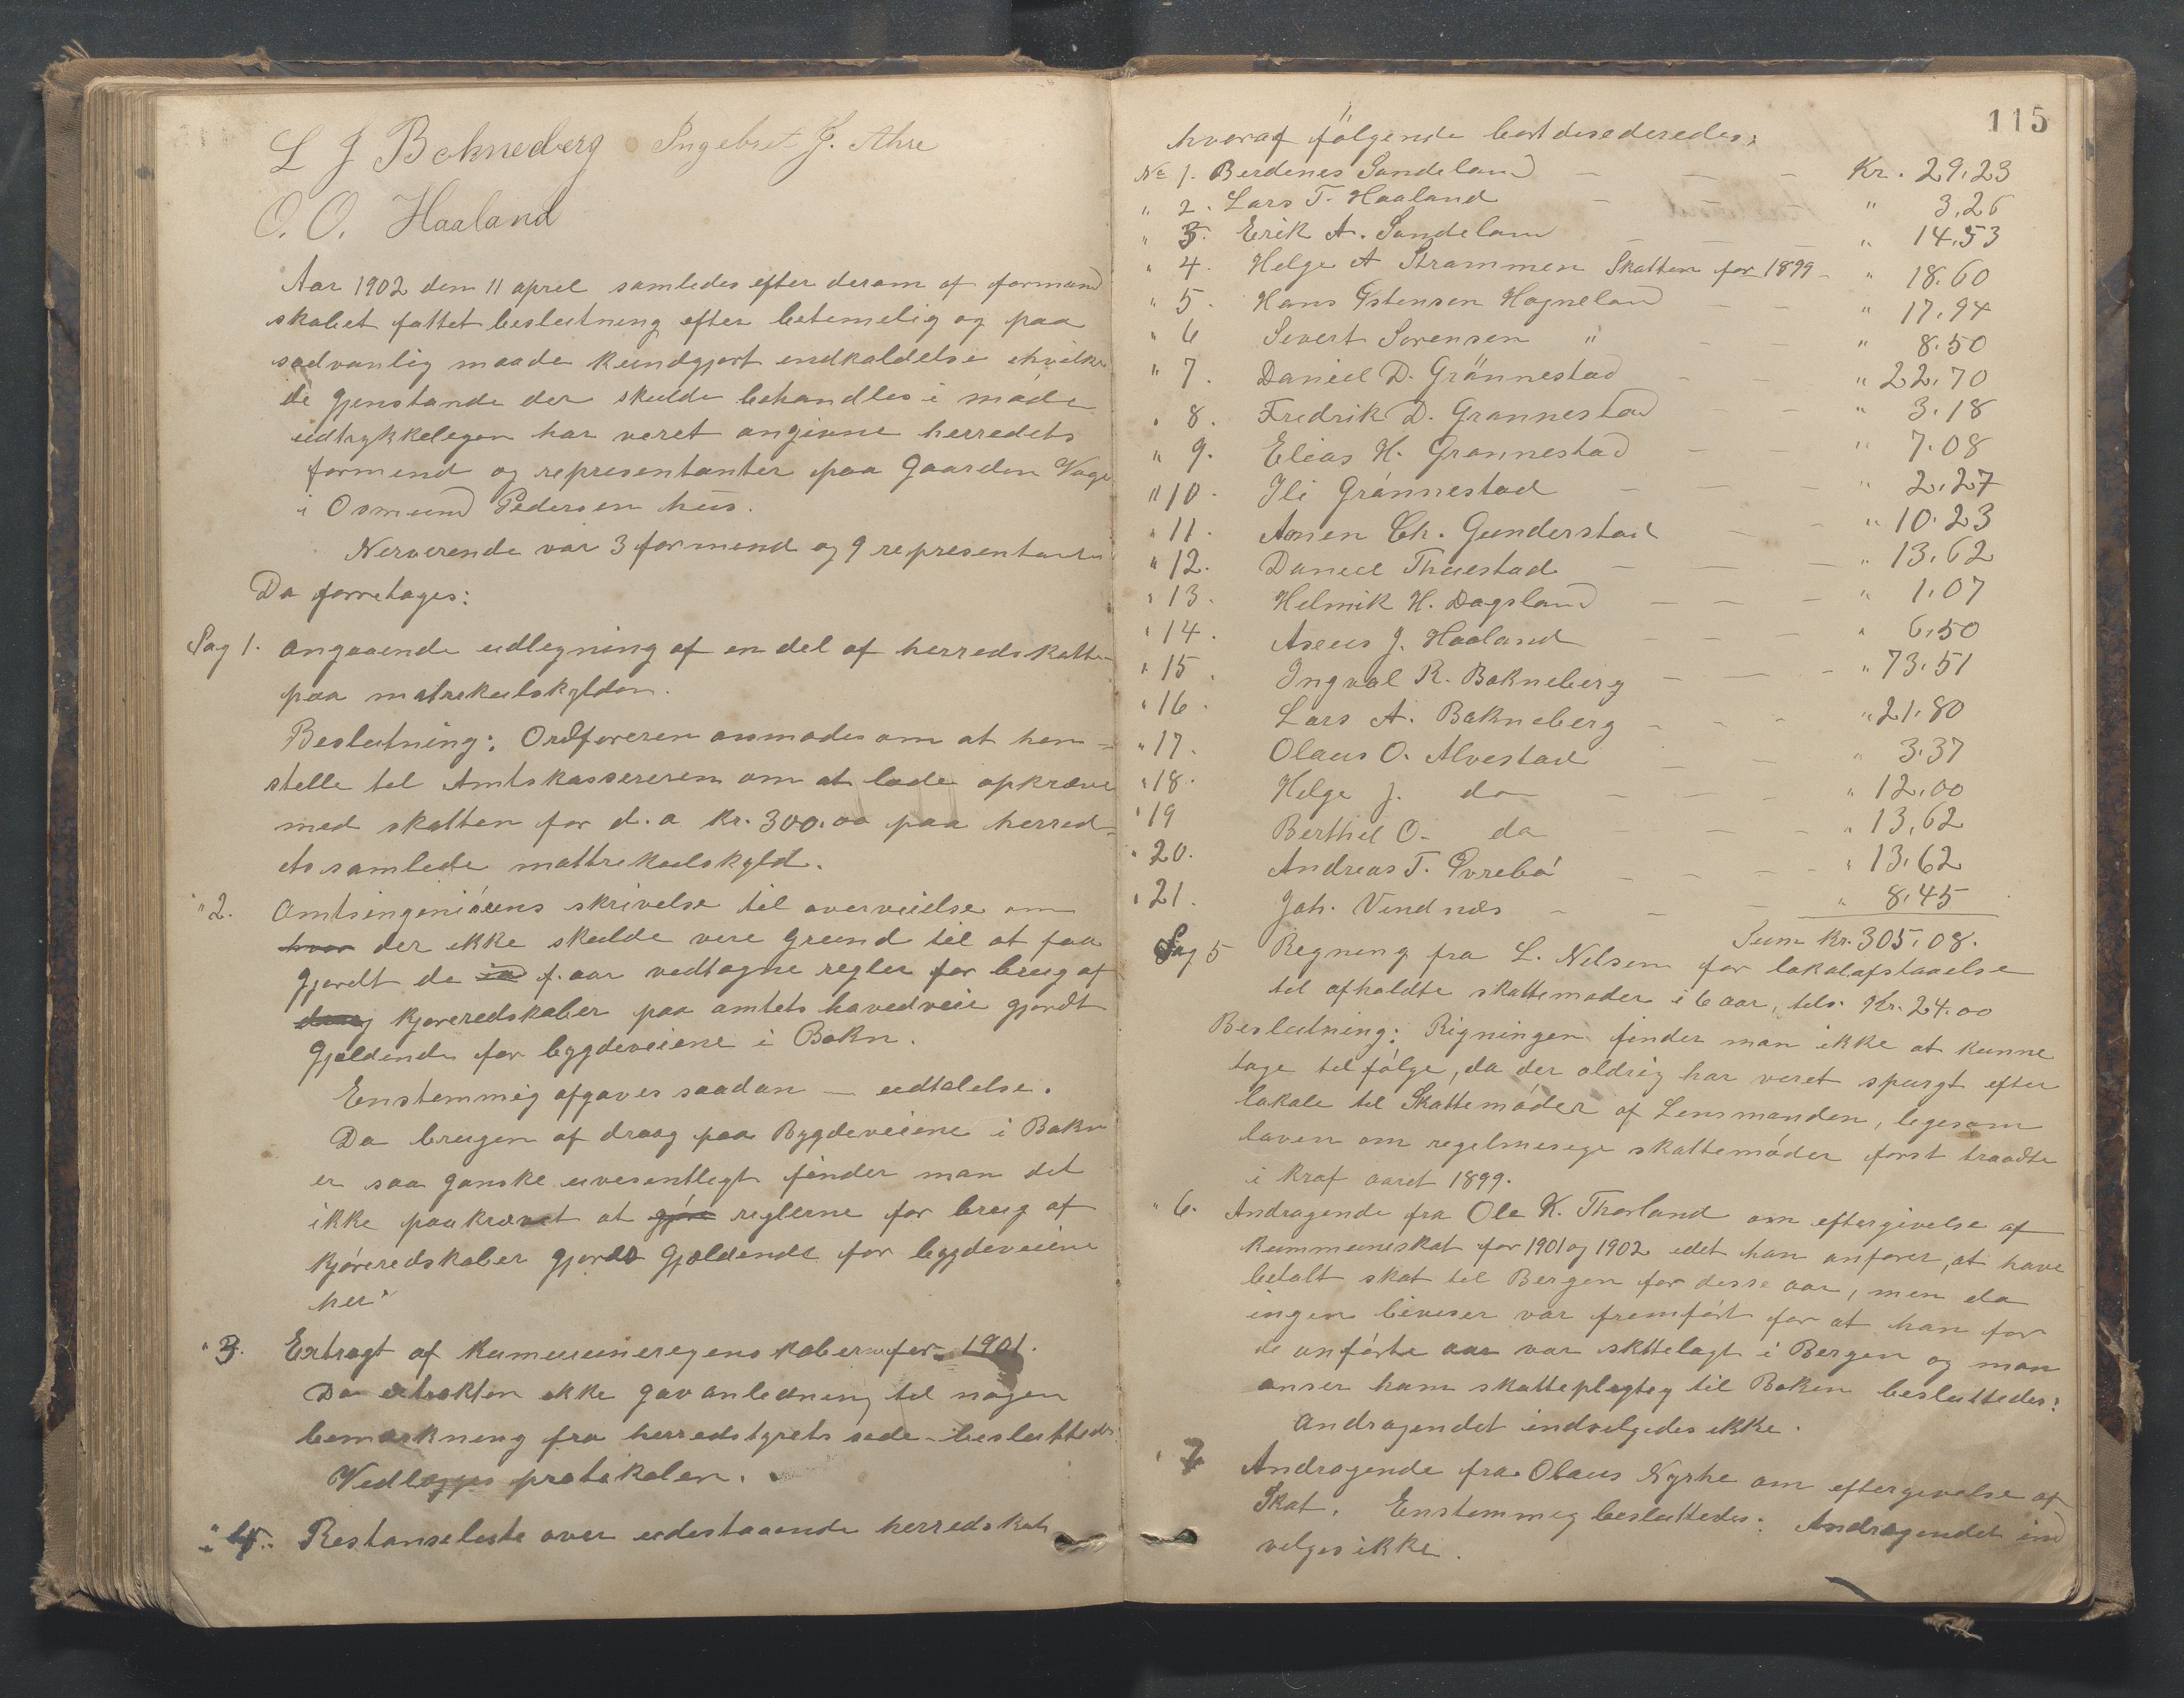 L J Bokneberg Ingebret J. Ahre
O. O. Haaland
Aar 1902 den 11 aprel samledes efter derom af formand
skabet fattet beslutning efter betemelig og paa
sedvanlig maade kundgjort indkaldelse ihvilke
de gjenstande der skulde behandles i møde
udtrykkelegen har veret angivne herredets
formend og representanter paa Gaarden Vage
i Osmund Pedersen hus.
Nerverende var 3 formend og 9 representanter
Da forretages:
Sag 1. angaaende udlegning af en del af herredskatten
paa matrekulskylden.
Beslutning: Ordføreren anmodes om at hen=
stelle til Amtskassereren om at lade opkræve
med skatten for d. a kr. 300.00 paa herred=
ets samlede mattrekulskyld.
" 2. Amtsingeniørens skrivelse til overveielse om
hvor der ikke skulde vere grund til at faa
gjordt de f. aar vedtagne regler for brug af
draag kjøreredskaber paa amtets hovedveie gjordt
gjeldende for bygdeveiene i Bokn.
Enstemmig afgaves saadan — udtalelse.
Da brugen af draag paa Bygdeveiene i Bokn
er saa ganske uvesentlegt finder man det
ikke paakrævet at gjøre reglerne for brug af
kjøreredskaber gjordt gjældende for bygdeveiene
her.
" 3. Extragt af kumuneregenskaberne for 1901.
Da extrakten ikke gav anledning til nogen
bemærkning fra herredstyrets side besluttedes:
Vedlægges protokolen.
" 4. Restanseleste over udestaaende herredskat
115
hvoraf følgende bort desederedes:
No 1. Berdenes Sandeland — — — Kr. 29.23
" 2. Lars T. Haaland — — " 3.26
" 3. Erik A. Sandeland — — — " 14.53
" 4. Helge A Strammen Skatten for 1899 — " 18.60
" 5. Hans Østensen Hogneland — — " 17.94
" 6 Sivert Sørensen " — — " 8.50
" 7. Daniel D. Grønnestad — — " 22.70
" 8. Fredrik D. Grønnestad — " 3.18
" 9. Elias H. Grønnestad — — " 7.08
" 10. Ili Grønnestad — — — " 2.27
" 11. Amen Ch. Gunderstad — — " 10.23
" 12. Daniel Thuestad — — — " 13.62
" 13. Helmik H. Dagsland — — — " 1.07
" 14. Aseus J. Haaland — — — " 6.50
" 15. Ingval R. Bokneberg — — — " 73.51
" 16. Lars A. Bokneberg — — — " 21.80
" 17. Olaus O. Alvestad — — " 3.37
" 18. Helge J. do — — — " 12.00
" 19 Berthel O. do — — — " 13.62
" 20. Andreas T. Øvrebø — — — — " 13.62
" 21. Joh. Vendnes — — — " 8.45
Sum kr. 305.08.
Sag 5 Regning fra L. Nilsen for lokalafstaaelse
til afholdte skattemøder i 6 aar, tils. Kr. 24.00
Beslutning: Rigningen finder man ikke at kunne
tage til følge, da der aldrig har veret spurgt efter
lokale til Skattemøder af Lensmanden, legesom
loven om regelmesege skattemøder først traadte
i kraf aaret 1899.
" 6. Andragende fra Ole K. Thorland om eftergivelse af
kummuneskat for 1901 og 1902 idet han anfører, at have
betalt skat til Bergen for desse aar, men da
ingen beviser var fremført for at han for
de anførte aar var skttelagt i Bergen og man
anser ham skatteplegteg til Boken besluttedes:
Andragendet indvelgedes ikke.
" 7 Andragende fra Olaus Nyrhe om eftergevelse af
Skat. Enstemmeg besluttedes: Andragendet ind
velges ikke.